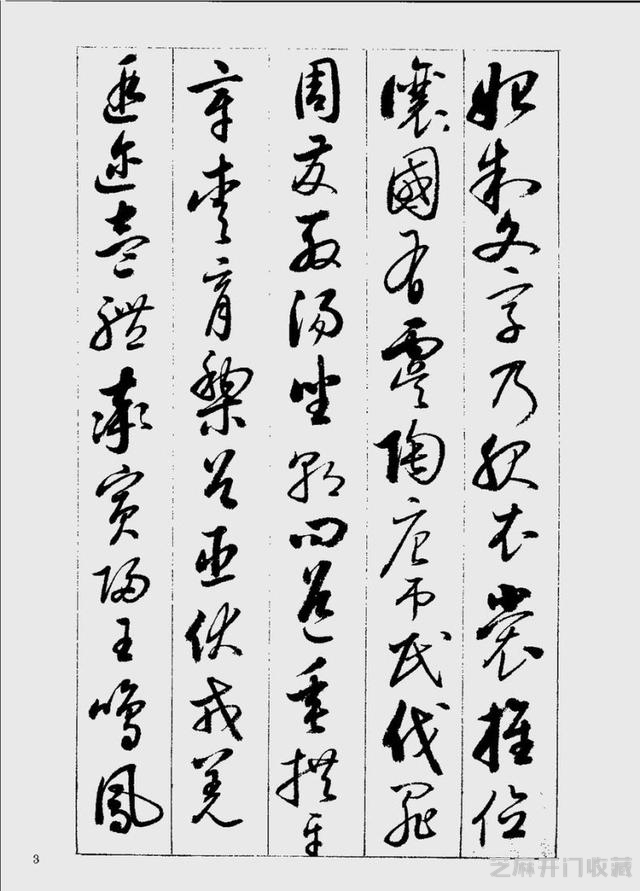 始制文字乃服衣裳推位
讓國有虞陶唐弔民伐罪
周發殷湯坐朝問道垂拱平
章愛育黎首臣伏戎羌
遐迩壹體率賓歸王鳴鳳
3
芝麻开门收藏